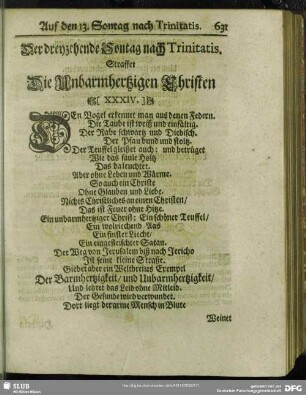 Auf den 13. Sontag nach Trinitatis. 631
Der dreyzehende Sontag nach Trinitatis.
Straffet
Die Unbarmhertzigen Christen
[XXXIV.]
DEn Vogel erkennet man aus denen Federn.
Die Taube ist weiß und einfältig.
Der Rabe schwartz und Diebisch.
Der Pfau bund und stoltz.
Der Teuffel gleißet auch: und betrüget
Wie das faule Holtz
Das da leuchtet.
Aber ohne Leben und Wärme.
So auch ein Christe
Ohne Glauben und Liebe.
Nichts Christliches an einen Christen/
Das ist Feuer ohne Hitze.
Ein unbarmhertziger Christ: Ein schöner Teuffel/
Ein wolriechend Aas
Ein finster Liecht/
Ein eingefleischter Satan.
Der Weg von Jerusalem biß nach Jericho
Ist eine kleine Straße.
Giebet aber ein Weltbreites Exempel
Der Barmhertzigkeit/ und Unbarmhertzigkeit/
Und lehret das Leid ohne Mitleid.
Der Gesunde wird verwundet.
Dort liegt der arme Mensch in Blute
Weinet
SLUB